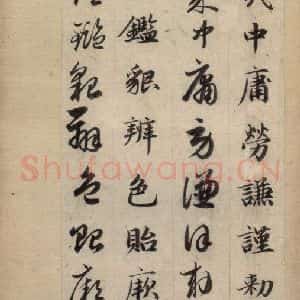 幾中庸勞謙謹勅
幾中庸勞謙謹勅
鑑貌辨色貽厥
鑑貌辨色貽厥
Shufawang.CN